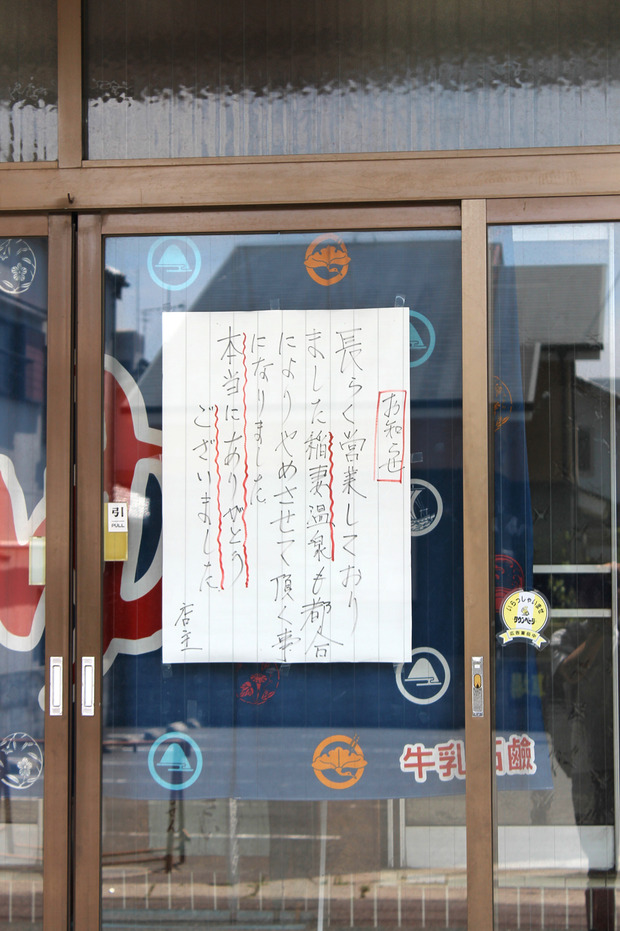 お知らせ
長らく営業しており
ました稲妻温泉も都合
によりやめさせて頂く事
になりました
本当にありがとう
ございました
店主
引
PULL
いらっしゃいませ
タウンページ
広告掲載中
牛乳石鹸